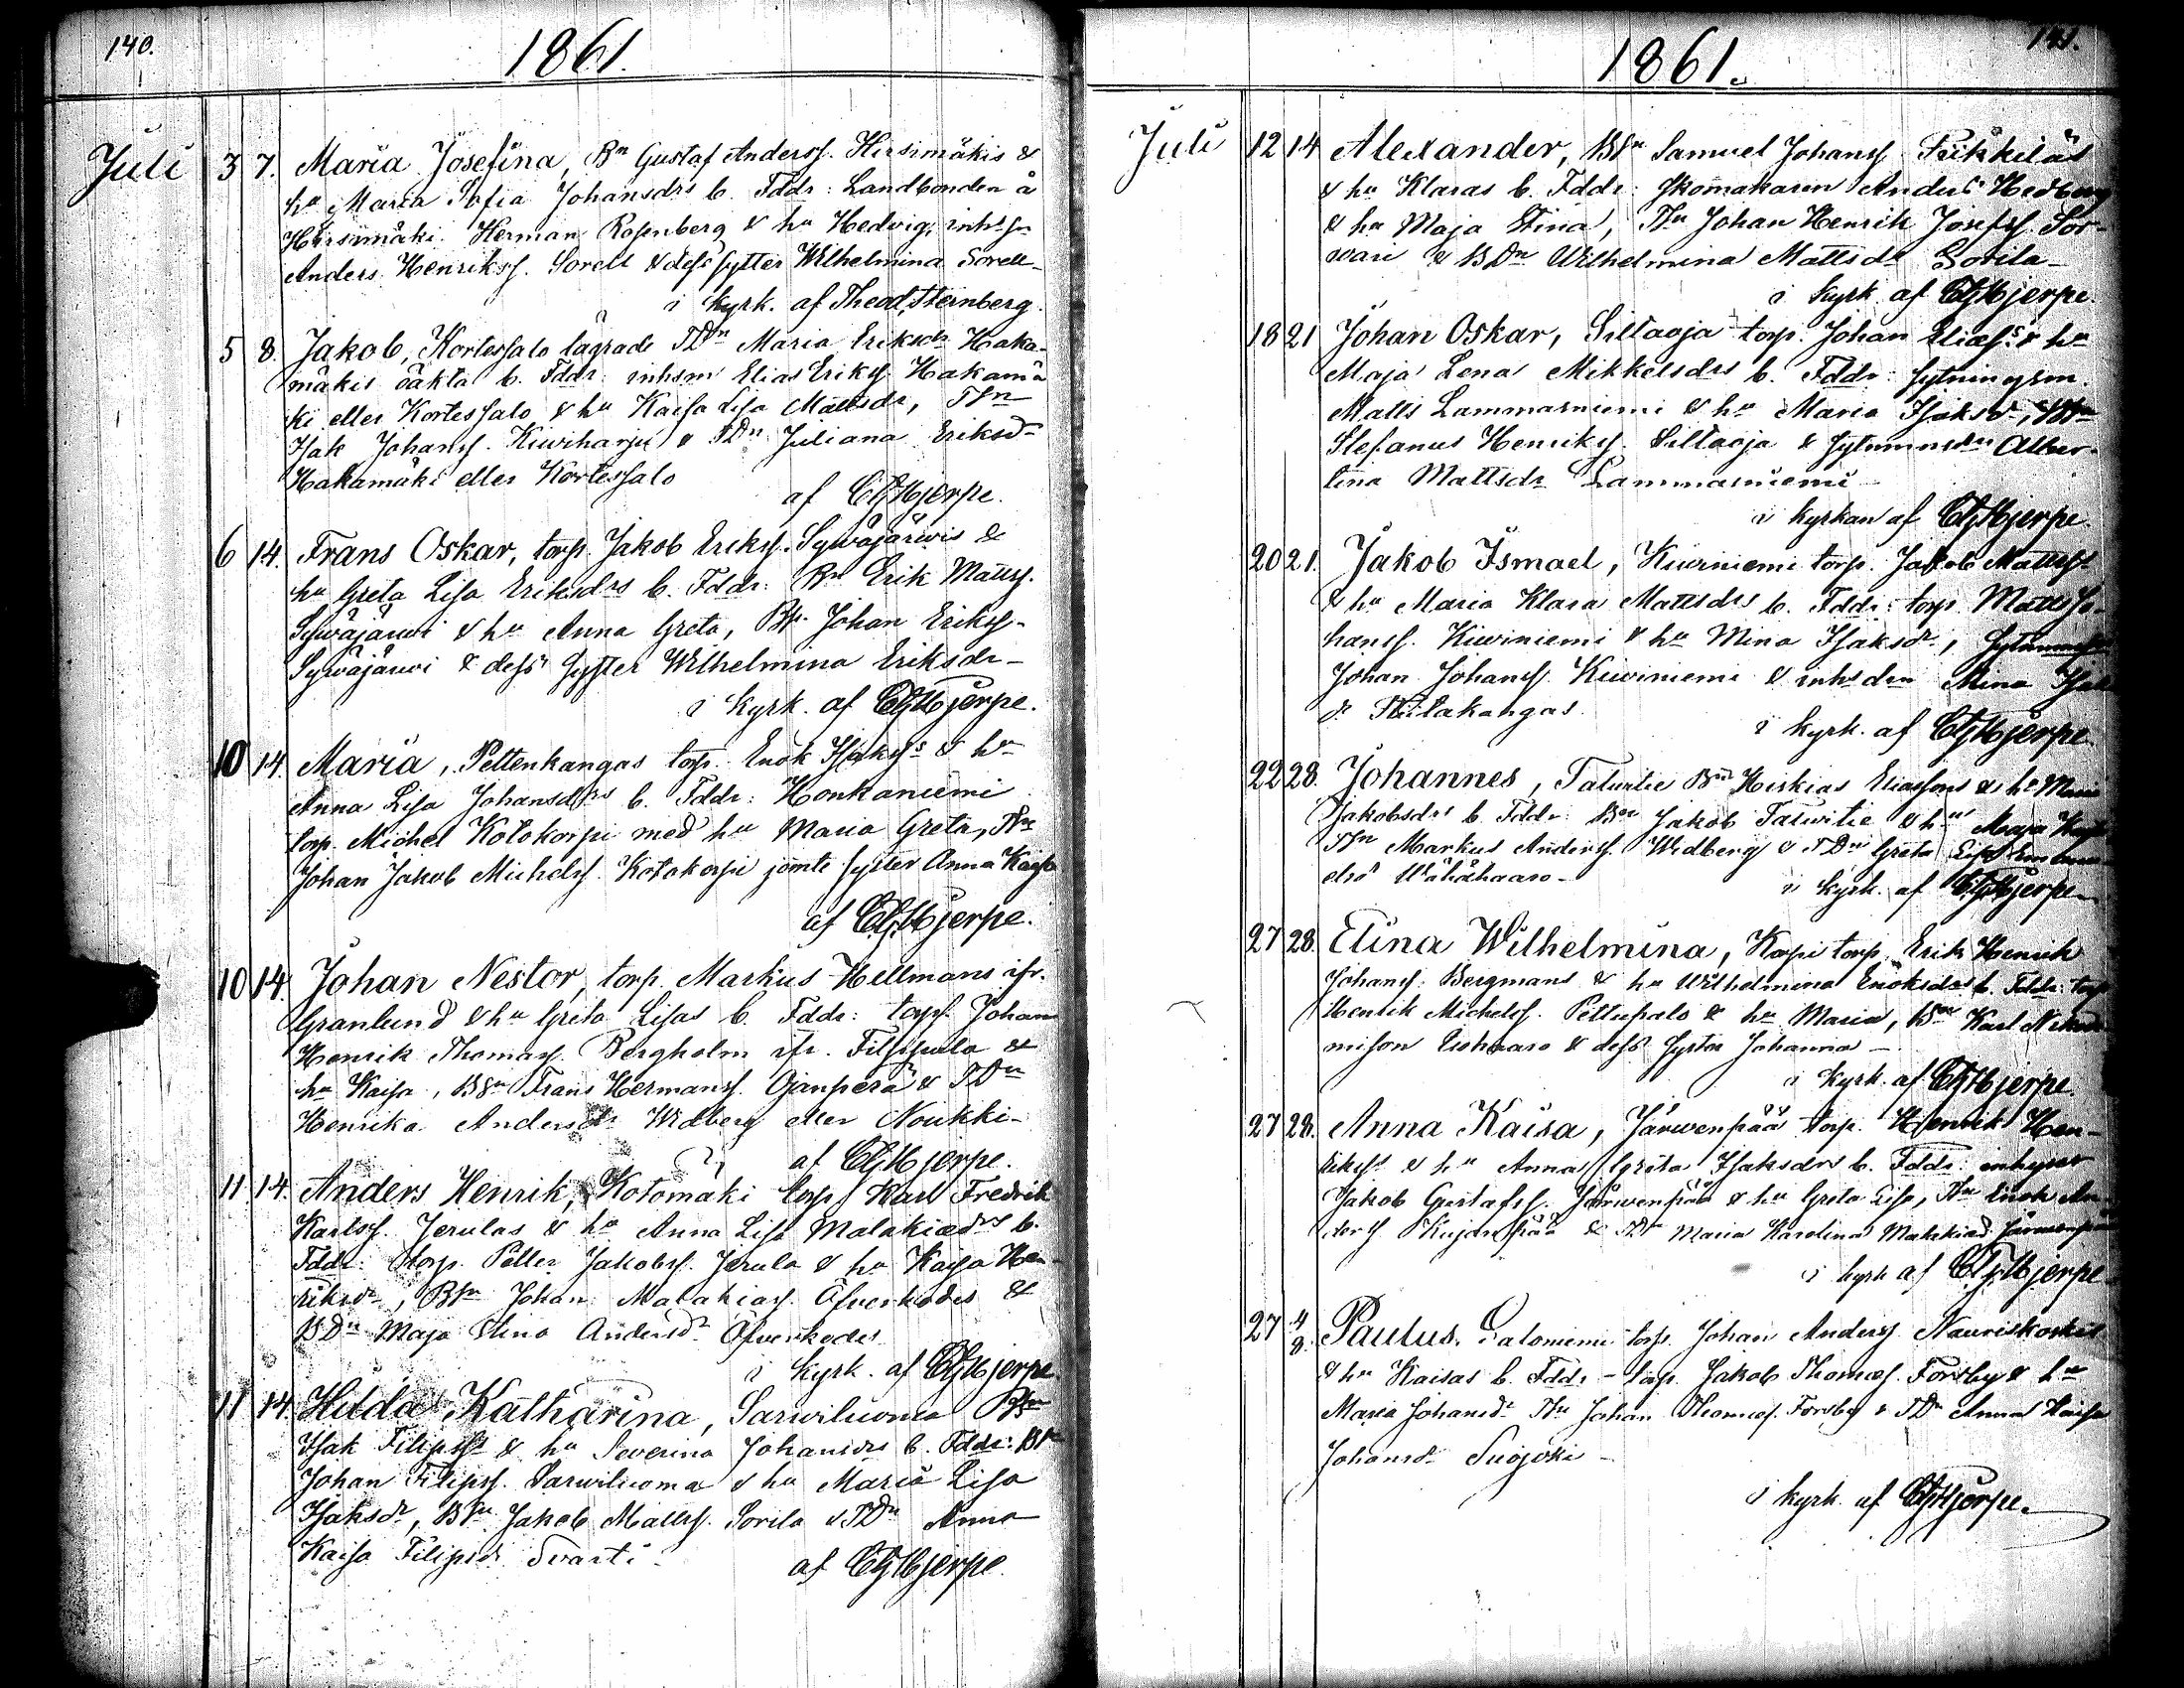 140.
1861.
Juli 3 7. Maria Josefina, Bn Gustaf Anderss. Hirsimäkis &
hu Maria Sofia Johansdrs b. Fddr: Landbonden å
Hirsimäki Herman Rosenberg & hu Hedvig, inhs sn
Anders Henrikss. Sorell & dess syster Wilhelmina Sorell
i kyrk. af Theod. Sternberg.
5 8. Jakob, Kortessalo lägrade TDn Maria Eriksdr Haka-
mäkis oäkta b. Fddr: inhsm Elias Erikss. Hakamä
ki eller Kortessalo & hu Kaisa Lisa Mattsdr, TSn
Isak Johanss. Kiwiharju & TDn Juliana Eriksdr
Hakamäki eller Kortessalo
af CGHjerpe.
6 14. Frans Oskar, torp. Jakob Erikss. Sywäjärwis &
hu Greta Lisa Eriksdrs b. Fddr: Bn Erik Matss.
Sywäjärwi & hu Anna Greta, BSn Johan Erikss.
Sywäjärwi & dess syster Wilhelmina Eriksdr
i kyrk. af CGHjerpe.
10 14. Maria, Pettenkangas torp. Enok Isakss & hu
Anna Lisa Johansdrs b. Fddr: Honkaniemi
torp. Michel Kotokorpi med hu Maria Greta, TSn
Johan Jakob Michelss. Kotokorpi jemte syster Anna Kaisa
af CGHjerpe.
10 14. Johan Nestor, torp. Markus Hellmans ifr.
Granlund & hu Greta Lisas b. Fddr: torp. Johan
Henrik Thomass. Bergholm ifr. Filppula &
hu Kaisa, BSn Frans Hermanss. Ojanperä & TDn
Henrika Andersdr Widberg eller Noukki
af CGHjerpe.
11 14. Anders Henrik, Kotomäki torp. Karl Fredrik
Karlss. Jerulas & hu Anna Lisa Malakiædrs b.
Fddr: torp. Petter Jakobss. Jerula & hu Kaisa Hen-
riksdr, BSn Johan Malakiass. Öfverkodes &
BDn Maja Stina Andersdr Öfverkodes
i kyrk. af CGHjerpe
11 14. Hilda Katharina, Sarwiluoma BSn
Isak Filipss & hu Severina Johansdrs b. Fddr: BSn
Johan Filipss. Sarwiluoma & hu Maria Lisa
Isaksdr, BSn Jakob Mattss. Sorila & TDn Anna
Kaisa Filipsdr Svarti
af CGHjerpe
141.
1861.
Juli 12 14 Alexander, BSn Samuel Johanss
& hu Klaras b. Fddr: skomakaren Anders Hedberg
& hu Maja Stina, TSn Johan Henrik Josefss. Sor-
vari & BDn Wilhelmina Mattsdr Sorila
i kyrk. af CGHjerpe.
18 21 Johan Oskar, Siltaoja torp. Johan Eliæss & hu
Maja Lena Mikkelsdrs b. Fddr: sytningsm.
Matts Lammasniemi & hu Maria Isaksdr,
Stefanus Henrikss. Siltaoja & Alber-
tina Mattsdr Lammasniemi
i kyrkan af CGHjerpe.
20 21. Jakob Ismael, Kiwiniemi torp. Jakob Mattss
& hu Maria Klara Mattsdrs b. Fddr: torp. Matts Jo-
hanss. Kiwiniemi & hu Mina Isaksdr,
Johan Johanss. Kiwiniemi & inhs drn Mina Isak
dr
i kyrk. af CGHjerpe
22 28. Johannes, Hiskias Eliassons & hu
Jakobsdrs b. Fddr: Bn Jakob Tarwitie & hu Maja
TSn Markus Anderss. Widberg & TDn Greta Lisa
Wähähaaro
i kyrk. af CGHjerpe
27 28. Elina Wilhelmina, Korpi torp. Erik Henrik
Johanss. Bergmans & hu Wilhelmina Enoksdrs b. Fddr: torp
Henrik Michelss. Pettusalo & hu Maria, BSn Karl
& dess syster Johanna
i kyrk. af CGHjerpe.
27 28. Anna Kaisa, Järwenpää torp. Henrik Hen-
rikss & hu Anna Greta Isaksdrs b. Fddr: inhyses
Jakob Gustafss. Järwenpää & hu Greta Lisa, TSn Enok An-
derss & TDn Maria Karolina Malakiædr Järwenpää
i kyrk af CGHjerpe
27 4/8. Paulus, Saloniemi torp. Johan Anderss. Nauriskoskis
& hu Kaisas b. Fddr - torp. Jakob Thomæss. Forsby & hu
Maria Johansdr TSn Johan Thomæss. Forsby & TDn Anna Kaisa
Johansdr Suojoki
i kyrk. af CGHjerpe.